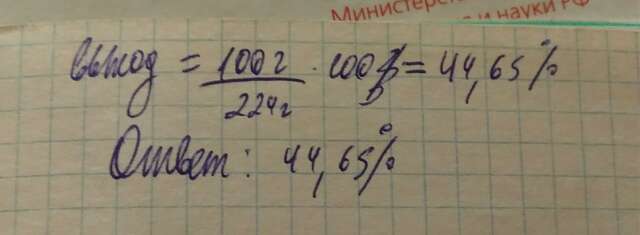 Министер
и науки РФ
выход = 100г / 224г · 100% = 44,65%
Ответ: 44,65%